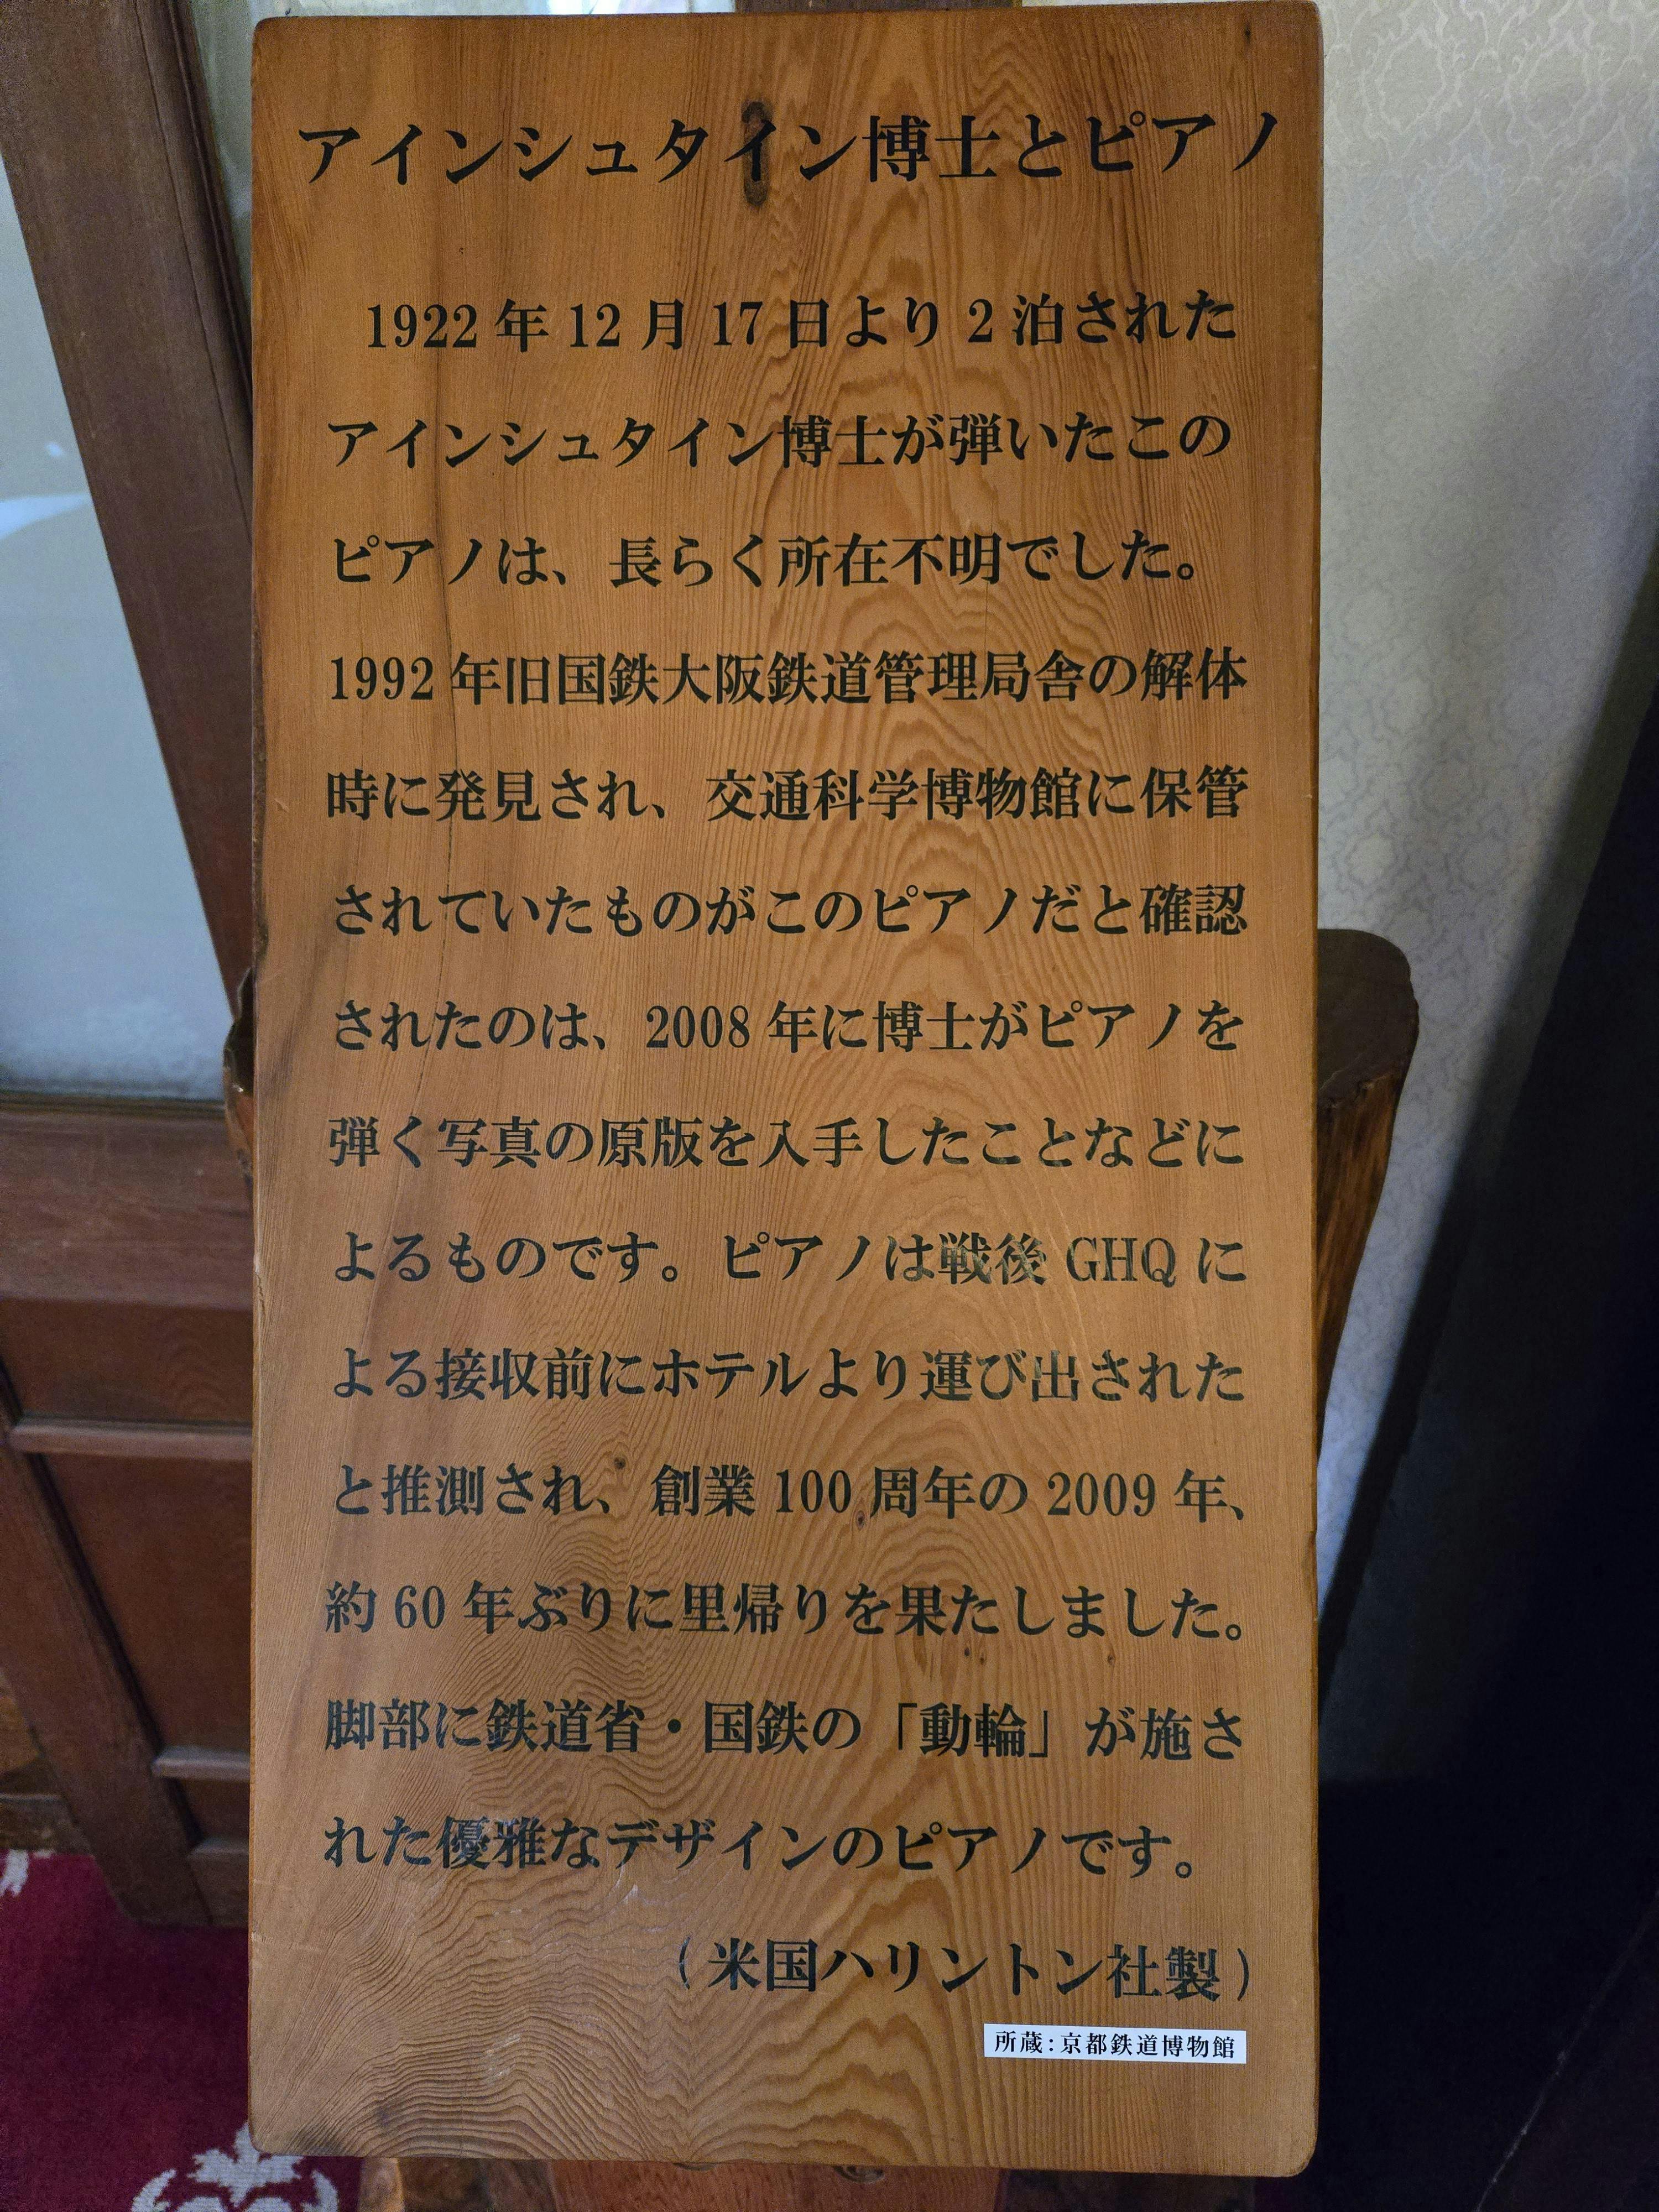 アインシュタイン博士とピアノ
1922年12月17日より2泊された
アインシュタイン博士が弾いたこの
ピアノは、長らく所在不明でした。
1992年旧国鉄大阪鉄道管理局舎の解体
時に発見され、交通科学博物館に保管
されていたものがこのピアノだと確認
されたのは、2008年に博士がピアノを
弾く写真の原版を入手したことなどに
よるものです。ピアノは戦後GHQに
よる接収前にホテルより運び出された
と推測され、創業100周年の2009年、
約60年ぶりに里帰りを果たしました。
脚部に鉄道省・国鉄の「動輪」が施さ
れた優雅なデザインのピアノです。
(米国ハリントン社製)
所蔵:京都鉄道博物館